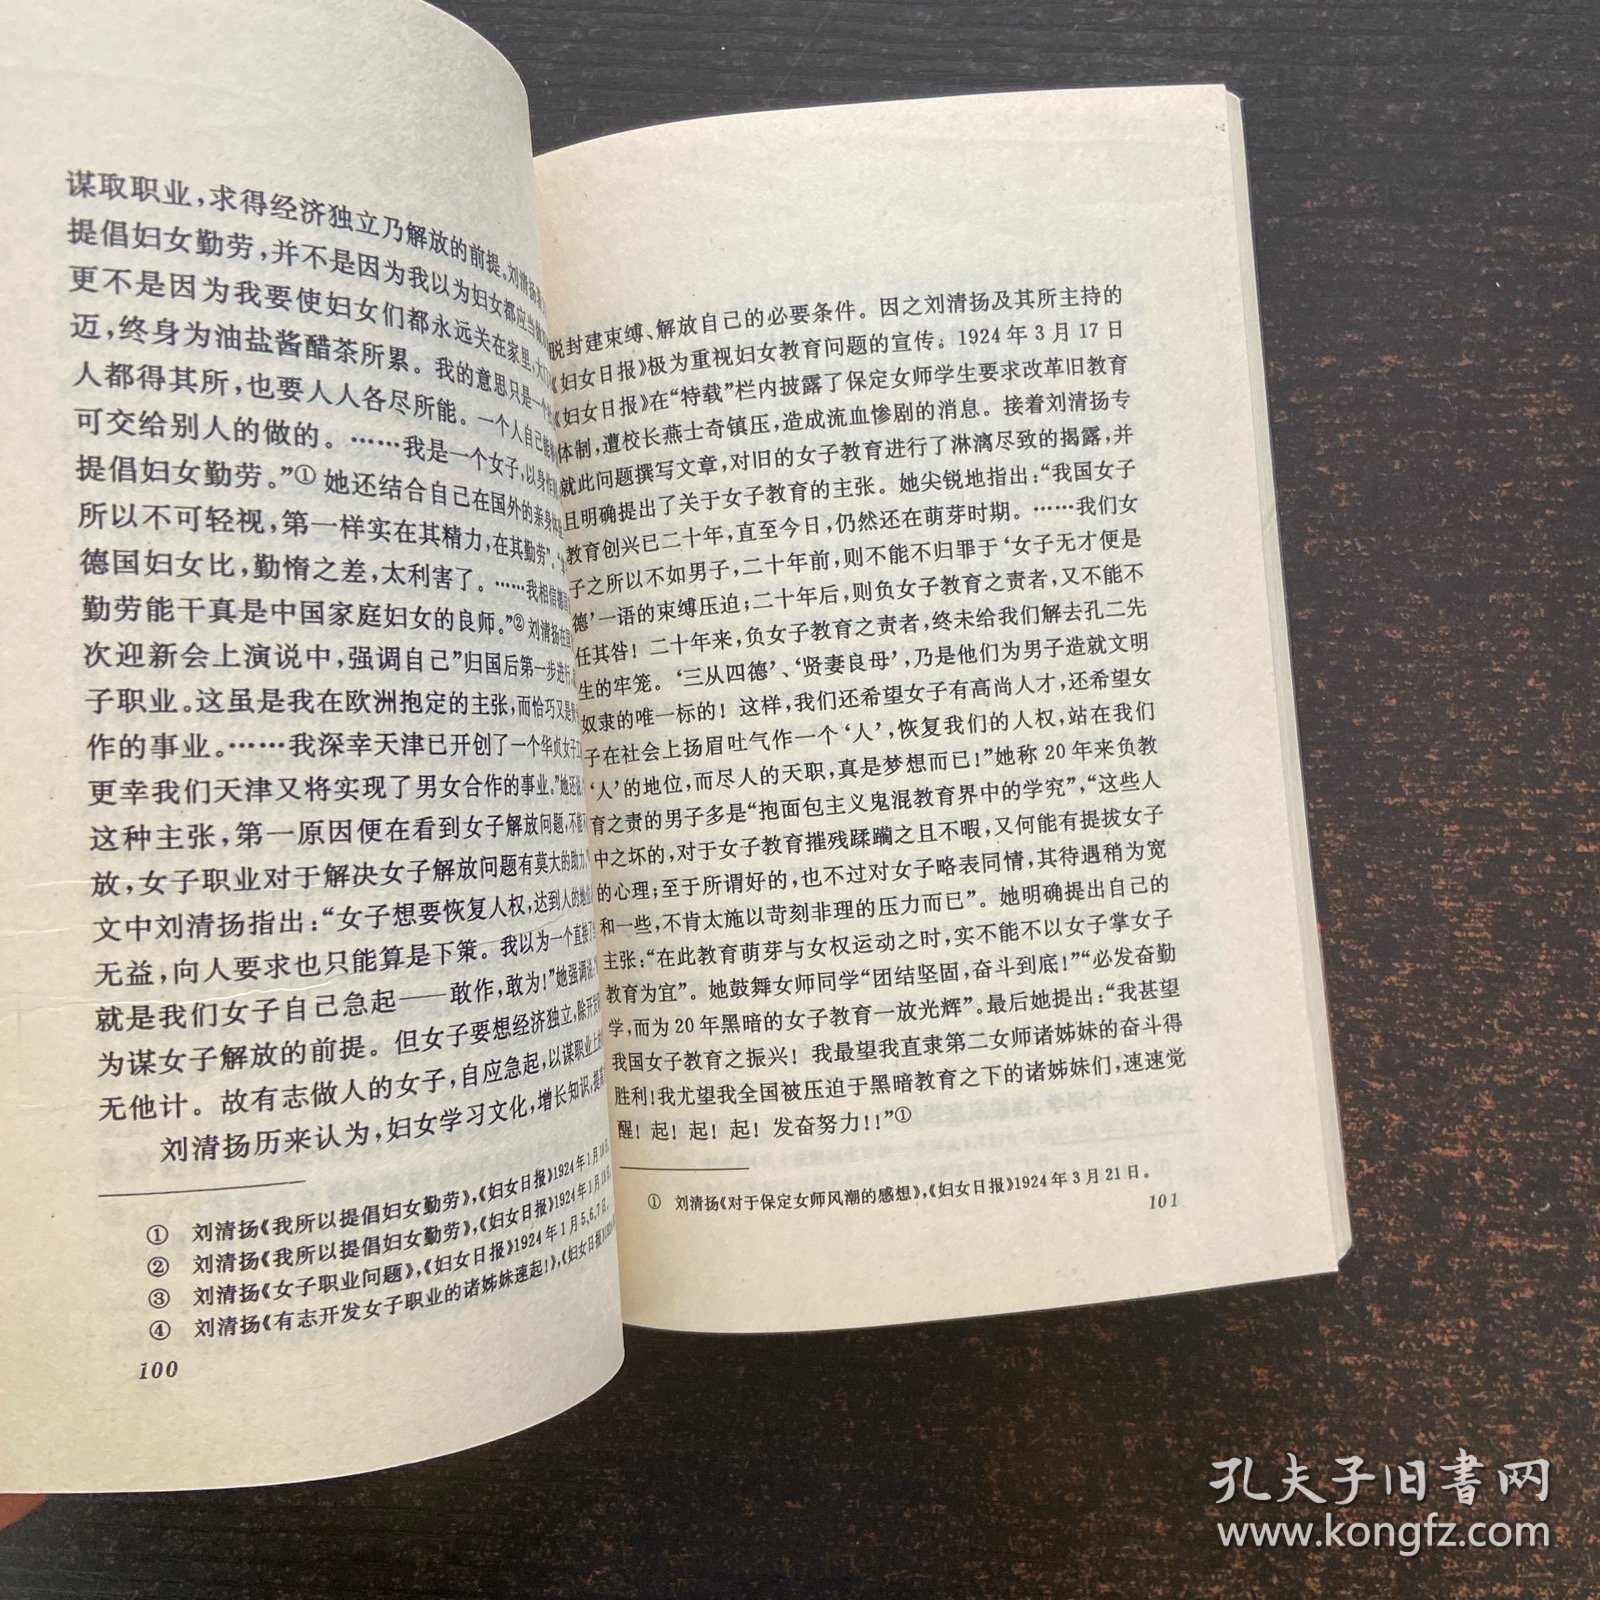 谋取职业，求得经济独立乃解放的前提。刘清扬
提倡妇女勤劳，并不是因为我以为妇女都应当
更不是因为我要使妇女们都永远关在家里，大门
迈，终身为油盐酱醋茶所累。我的意思只是一个
人都得其所，也要人人各尽所能。一个人自己能
可交给别人的做的。……我是一个女子，以身作
提倡妇女勤劳。”①她还结合自己在国外的亲身
所以不可轻视，第一样实在其精力，在其勤劳”。
德国妇女比，勤惰之差，太利害了。……我相信德国
勤劳能干真是中国家庭妇女的良师。”②刘清扬在
次迎新会上演说中，强调自己”归国后第一步进行
子职业。这虽是我在欧洲抱定的主张，而恰巧又是
作的事业。……我深幸天津已开创了一个华贞女子
更幸我们天津又将实现了男女合作的事业。”她还说
这种主张，第一原因便在看到女子解放问题，不能不
放，女子职业对于解决女子解放问题有莫大的助力。
文中刘清扬指出：“女子想要恢复人权，达到人的地
无益，向人要求也只能算是下策。我以为一个直接了
就是我们女子自己急起——敢作，敢为！”她强调说
为谋女子解放的前提。但女子要想经济独立，除开
无他计。故有志做人的女子，自应急起，以谋职业上
刘清扬历来认为，妇女学习文化，增长知识，提
① 刘清扬《我所以提倡妇女勤劳》，《妇女日报》1924年1月
② 刘清扬《我所以提倡妇女勤劳》，《妇女日报》1924年1月
③ 刘清扬《女子职业问题》，《妇女日报》1924年1月5、6、7日。
④ 刘清扬《有志开发女子职业的诸姊妹速起！》，《妇女日报》
100
脱封建束缚、解放自己的必要条件。因之刘清扬及其所主持的
《妇女日报》极为重视妇女教育问题的宣传。1924年3月17日
《妇女日报》在“特载”栏内披露了保定女师学生要求改革旧教育
体制，遭校长燕士奇镇压，造成流血惨剧的消息。接着刘清扬专
就此问题撰写文章，对旧的女子教育进行了淋漓尽致的揭露，并
且明确提出了关于女子教育的主张。她尖锐地指出：“我国女子
教育创兴已二十年，直至今日，仍然还在萌芽时期。……我们女
子之所以不如男子，二十年前，则不能不归罪于‘女子无才便是
德’一语的束缚压迫；二十年后，则负女子教育之责者，又不能不
任其咎！二十年来，负女子教育之责者，终未给我们解去孔二先
生的牢笼。‘三从四德’、‘贤妻良母’，乃是他们为男子造就文明
奴隶的唯一标的！这样，我们还希望女子有高尚人才，还希望女
子在社会上扬眉吐气作一个‘人’，恢复我们的人权，站在我们
‘人’的地位，而尽人的天职，真是梦想而已！”她称20年来负教
育之责的男子多是“抱面包主义鬼混教育界中的学究”，“这些人
中之坏的，对于女子教育摧残蹂躏之且不暇，又何能有提拔女子
的心理；至于所谓好的，也不过对女子略表同情，其待遇稍为宽
和一些，不肯太施以苛刻非理的压力而已”。她明确提出自己的
主张：“在此教育萌芽与女权运动之时，实不能不以女子掌女子
教育为宜”。她鼓舞女师同学“团结坚固，奋斗到底！”“必发奋勤
学，而为20年黑暗的女子教育一放光辉”。最后她提出：“我甚望
我国女子教育之振兴！我最望我直隶第二女师诸姊妹的奋斗得
胜利！我尤望我全国被压迫于黑暗教育之下的诸姊妹们，速速觉
醒！起！起！起！发奋努力！！”①
① 刘清扬《对于保定女师风潮的感想》，《妇女日报》1924年3月21日。
101
孔夫子旧书网
www.kongfz.com